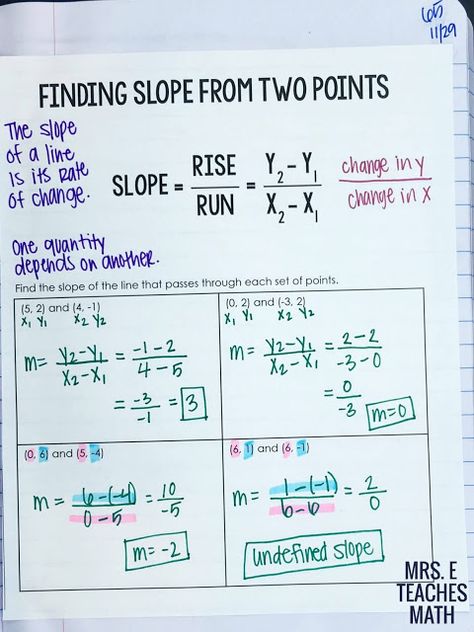 65
11/29
FINDING SLOPE FROM TWO POINTS
The slope
of a line
is its rate
of change.
SLOPE = RISE / RUN = Y₂ - Y₁ / X₂ - X₁
change in y / change in x
One quantity
depends on another.
Find the slope of the line that passes through each set of points.
(5, 2) and (4, -1)
X₁ Y₁ X₂ Y₂
m = Y₂-Y₁ / X₂-X₁ = -1-2 / 4-5
= -3 / -1 = 3
(0, 2) and (-3, 2)
X₁ Y₁ X₂ Y₂
m = Y₂-Y₁ / X₂-X₁ = 2-2 / -3-0
= 0 / -3
m=0
(0, 6) and (5, -4)
m = 6-(-4) / 0-5 = 10 / -5
m=-2
(6, 1) and (6, -1)
m = 1-(-1) / 6-6 = 2 / 0
undefined slope
MRS. E
TEACHES
MATH